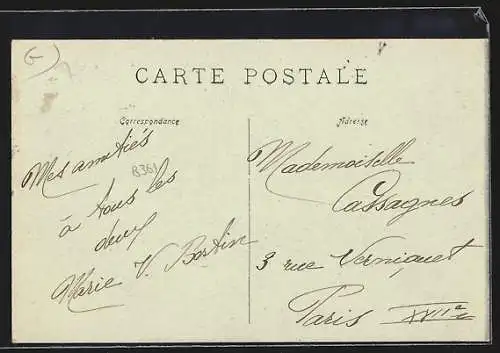 G
CARTE POSTALE
Correspondance
Adresse
Mes amitiés
B361
à tous les
deux
Marie V. Bastin
Mademoiselle
Cassagnes
3 rue Verniquet
Paris XVIIe